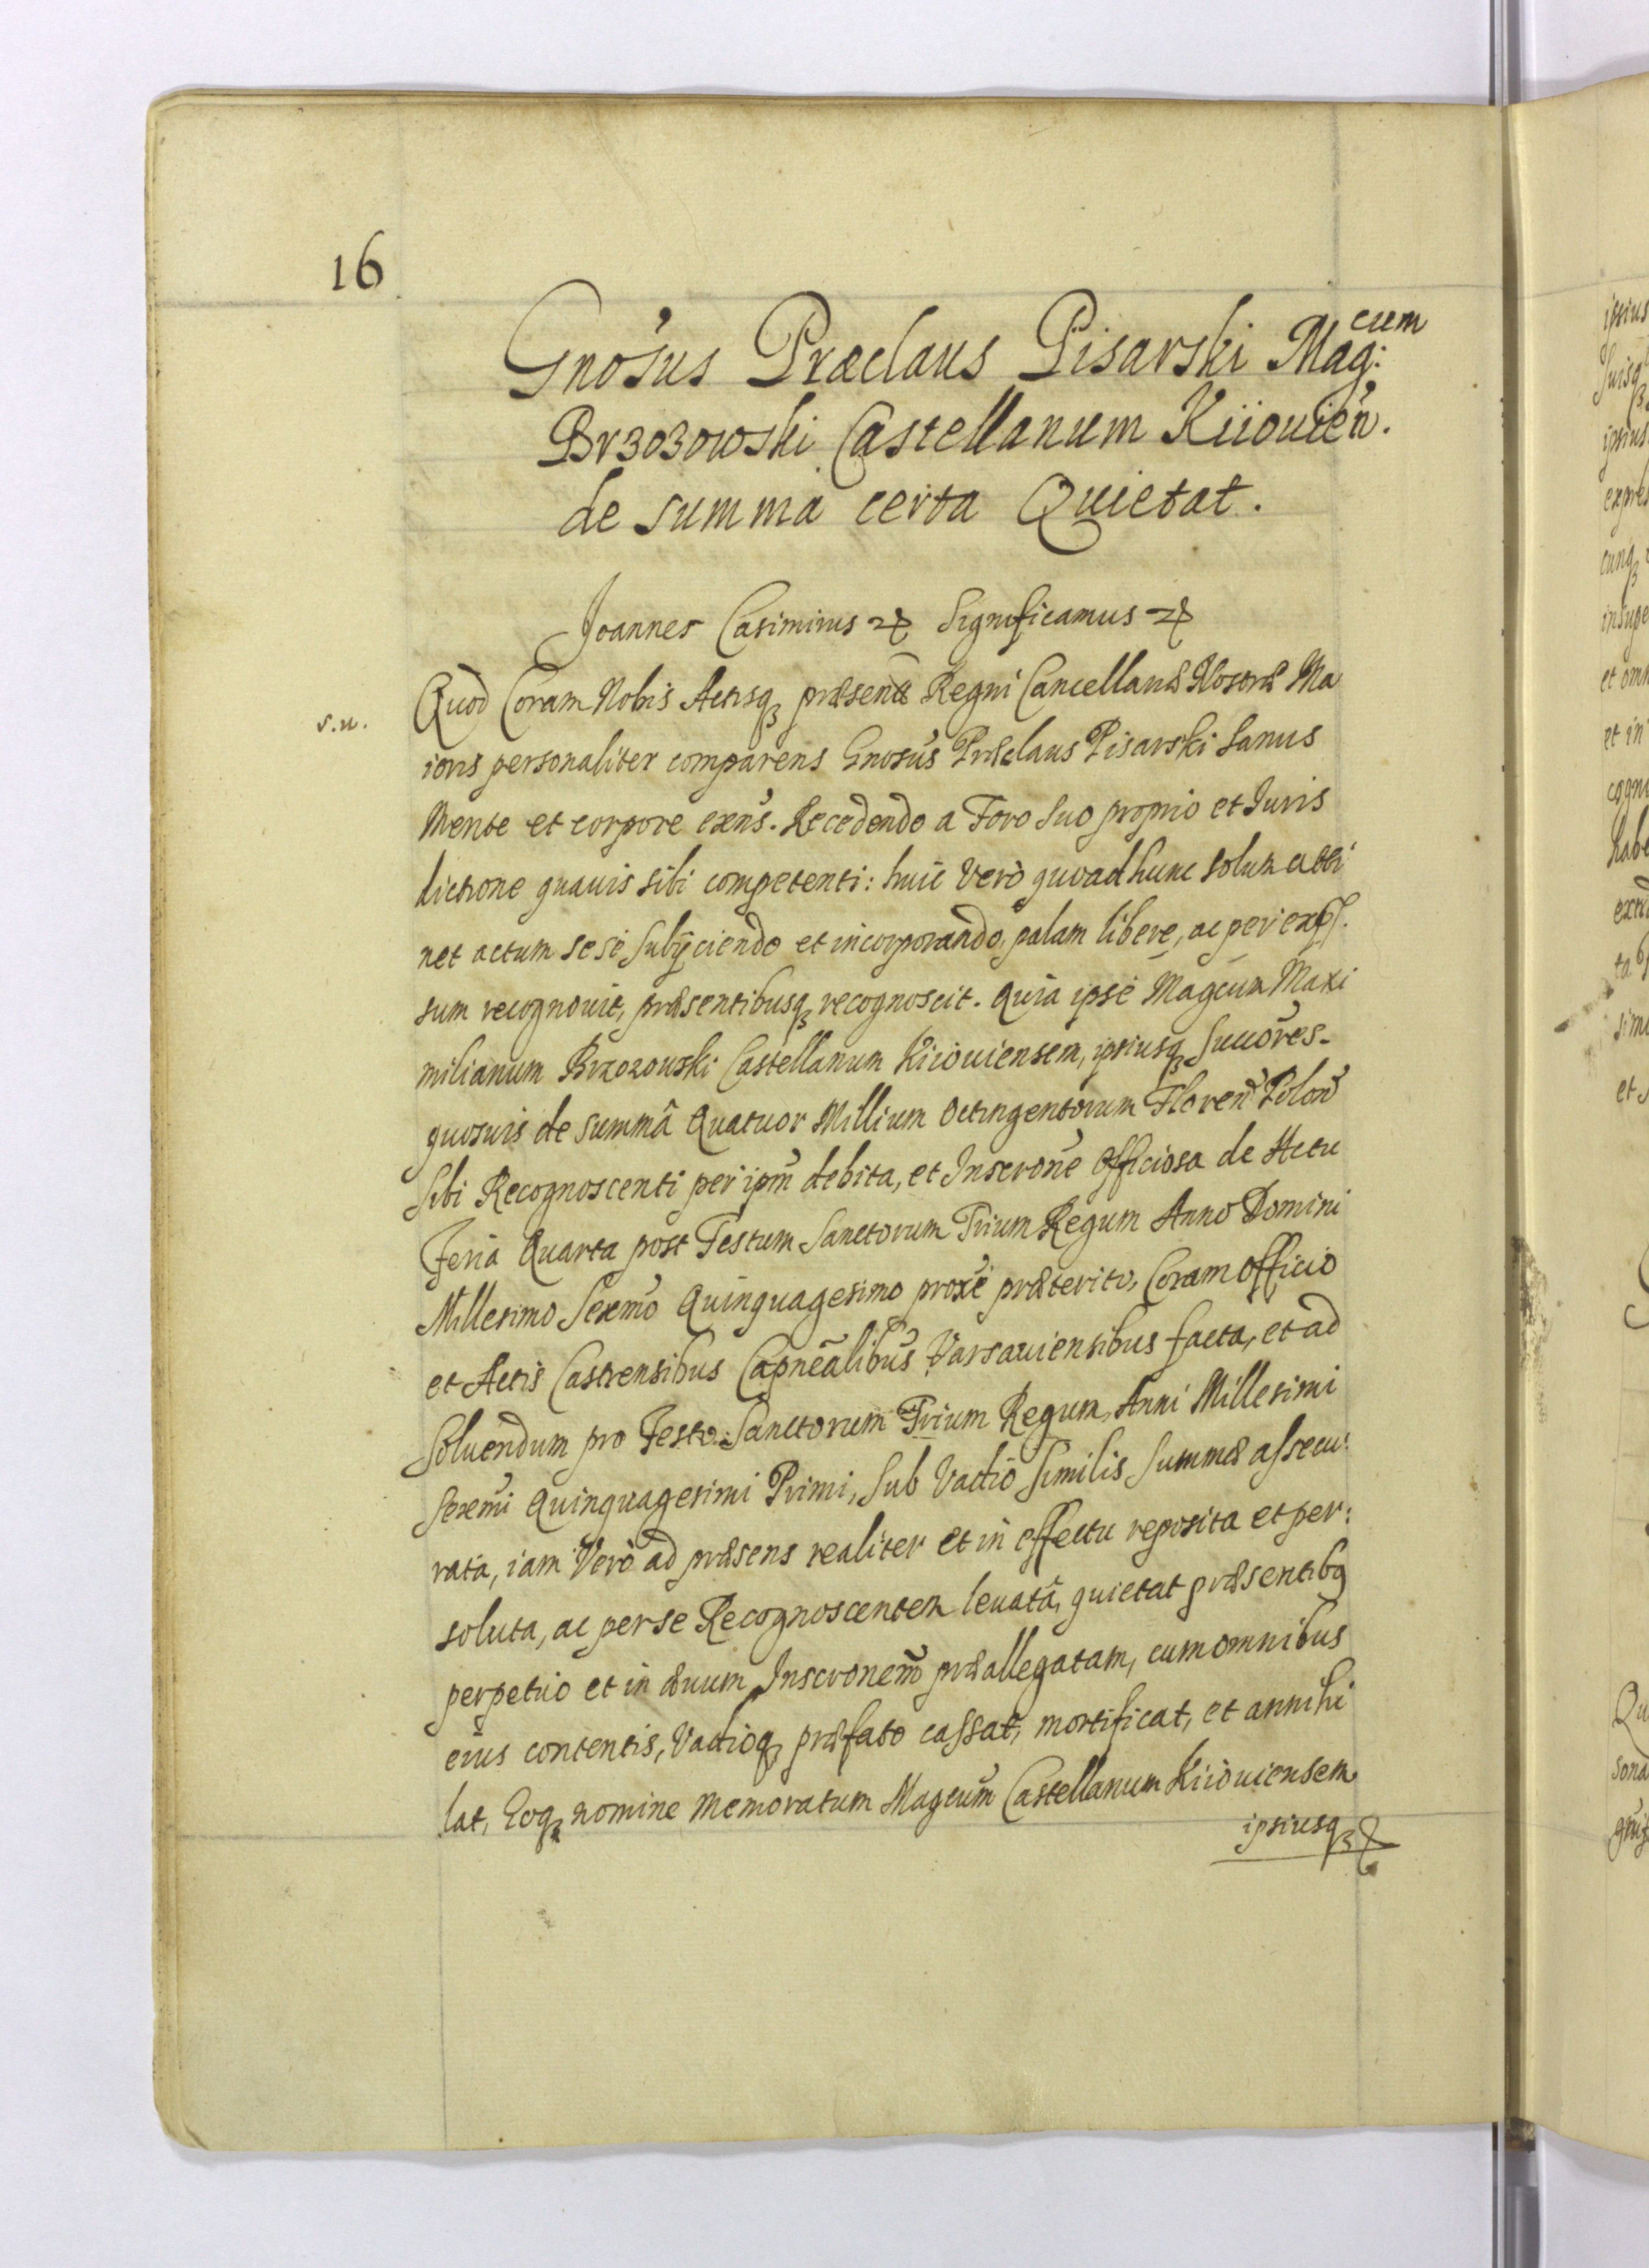 16
Gnosus Præclaus Pisarski Mag:cum
Brzozowski Castellanum Kiiouień.
de summa certa Quietat.
Joannes Casimirus &c Significamus &c
s.n. Quod Coram Nobis Actisq3 præsent Regni Cancellariæ Nostræ Ma
ioris personaliter comparens Gnosus Præclaus Pisarski sanus
Mente et corpore exns. Recedendo a Foro suo proprio et Juris
dictione quauis sibi competenti: huic Verò quoad hunc solum atti
net actum sese subijciendo et incorporando, palam libere, ac per expſ.
sum recognouit, præsentibusq3 recognoscit. Quia ipse Magcum Maxi
milianum Brzozowski Castellanum Kiiouiensem, ipsiusq3 Succores
quosuis de summâ Quatuor Millium Octingentorum Floren Polon
sibi Recognoscenti per ipm debita, et Inscrone Officiosa de Actu
Feria Quarta post Festum Sanctorum Trium Regum Anno Domini
Millesimo Sexmo Quinquagesimo proxe præterito, Coram Officio
et Actis Castrensibus Capnealibus Varsauiensibus facta, et ad
Soluendum pro Festo Sanctorum Trium Regum, Anni Millesimi
Sexmi Quinquagesimi Primi, Sub Vadio similis summæ assecu:
rata, iam Verò ad præsens realiter et in effectu reposita et per:
soluta, ac per se Recognoscentem leuatâ, quietat præsentibq
perpetuo et in æuum, Inscronem præallegatam, cum omnibus
eius contentis, Vadioq3 præfato cassat, mortificat, et annihi
lat, Eoq3 nomine memoratum Magcum Castellanum Kiiouiensem
ipsiusq3